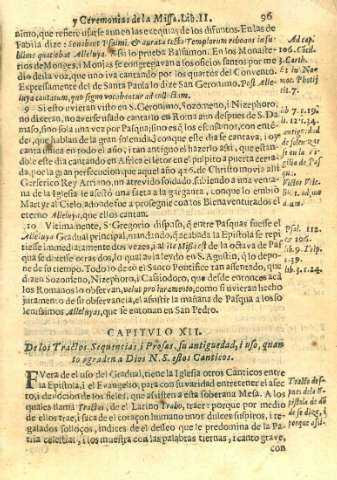 y Ceremonias de la Missa. Lib. II. 96
nimo, que refiere usarse aun en las exequias de los difuntos. En las de
Fabila dize: Sonabant Psalmi, & aurata tecta Templorum reboans in su-
blime quatiebat Alleluya. Assi lo prueba Balsamon. En los Monaste-
rios de Monges, i Monjas se congregavan a los oficios santos por me
dio desta voz, que uno iva cantando por los quartos del Convento.
Expressamente del de Santa Paula lo dize San Geronimo. Post Allelu
ya cantatum, quo signo vocabantur ad collectam.
9 Si esto uvieran visto en S. Geronimo, Sozomeno, i Nizephoro,
no dixeran, no averse usado cantarlo en Roma aun despues de S. Da
maso, sino sola una vez por Pasqua; sino es q los escusemos, con enten-
der, que hablan de la gran solenidad conque este dia se cantava, i que
cantavanica en todo el año; i tan antiguo el hazerlo assi, que estan-
dole este dia cantando en Africa el letor en el pulpito a puerta cerra-
da, por la gran persecucion que aquel año 426. de Christo movia alli
Genserico Rey Arriano, un atrevido soldado, subiendo a una venta-
na de la Iglesia le assestó una saeta a la garganta, conque lo embió
Martyr al Cielo, adonde fue a proseguir con los Bienaventurados el
eterno Alleluya, que ellos cantan.
10 Ultimamente, S. Gregorio dispuso, q entre Pasquas fuesse el
Alleluya Gradual principal, mandando, q acabada la Epistola se repi
tiesse inmediatamente dos vezes, i al Ite Missa est de la octava de Pas
qua se dixesse otras dos, lo qual avia leydo en S. Agustin, q lo depo-
ne de su tiempo. Todo lo dexó el Santo Pontifice tan assentado, que
dizen Sozomeno, Nizephoro, i Casiodoro, que desde entonces acá
los Romanos lo observan, velut pro iuramento, como si uvieran hecho
juramento de su observancia, el assistir la mañana de Pasqua a los so
lenissimos Alleluyas, que se entonan en San Pedro.
CAPITULO XII.
De los Tractos, Sequencias, i Prosas, su antiguedad, i uso, quan
to agraden a Dios N. S. estos Canticos.
FUera de el uso del Gradual, tiene la Iglesia otros Canticos entre
la Epistola, i el Evangelio, para con su varidad entretener el afec
to, i devocion de los fieles, que assisten a esta soberana Mesa. A los
quales llama Tractus, de el Latino Traho, traer: porque por medio
de ellos trae, i saca de el coraçon humano unos dulces suspiros, i re-
galados solloços, indices de el deseo que le predomina de la Pa
tria celestial, i los muestra con las palabras tiernas, i canto grave,
con
Ad cap.